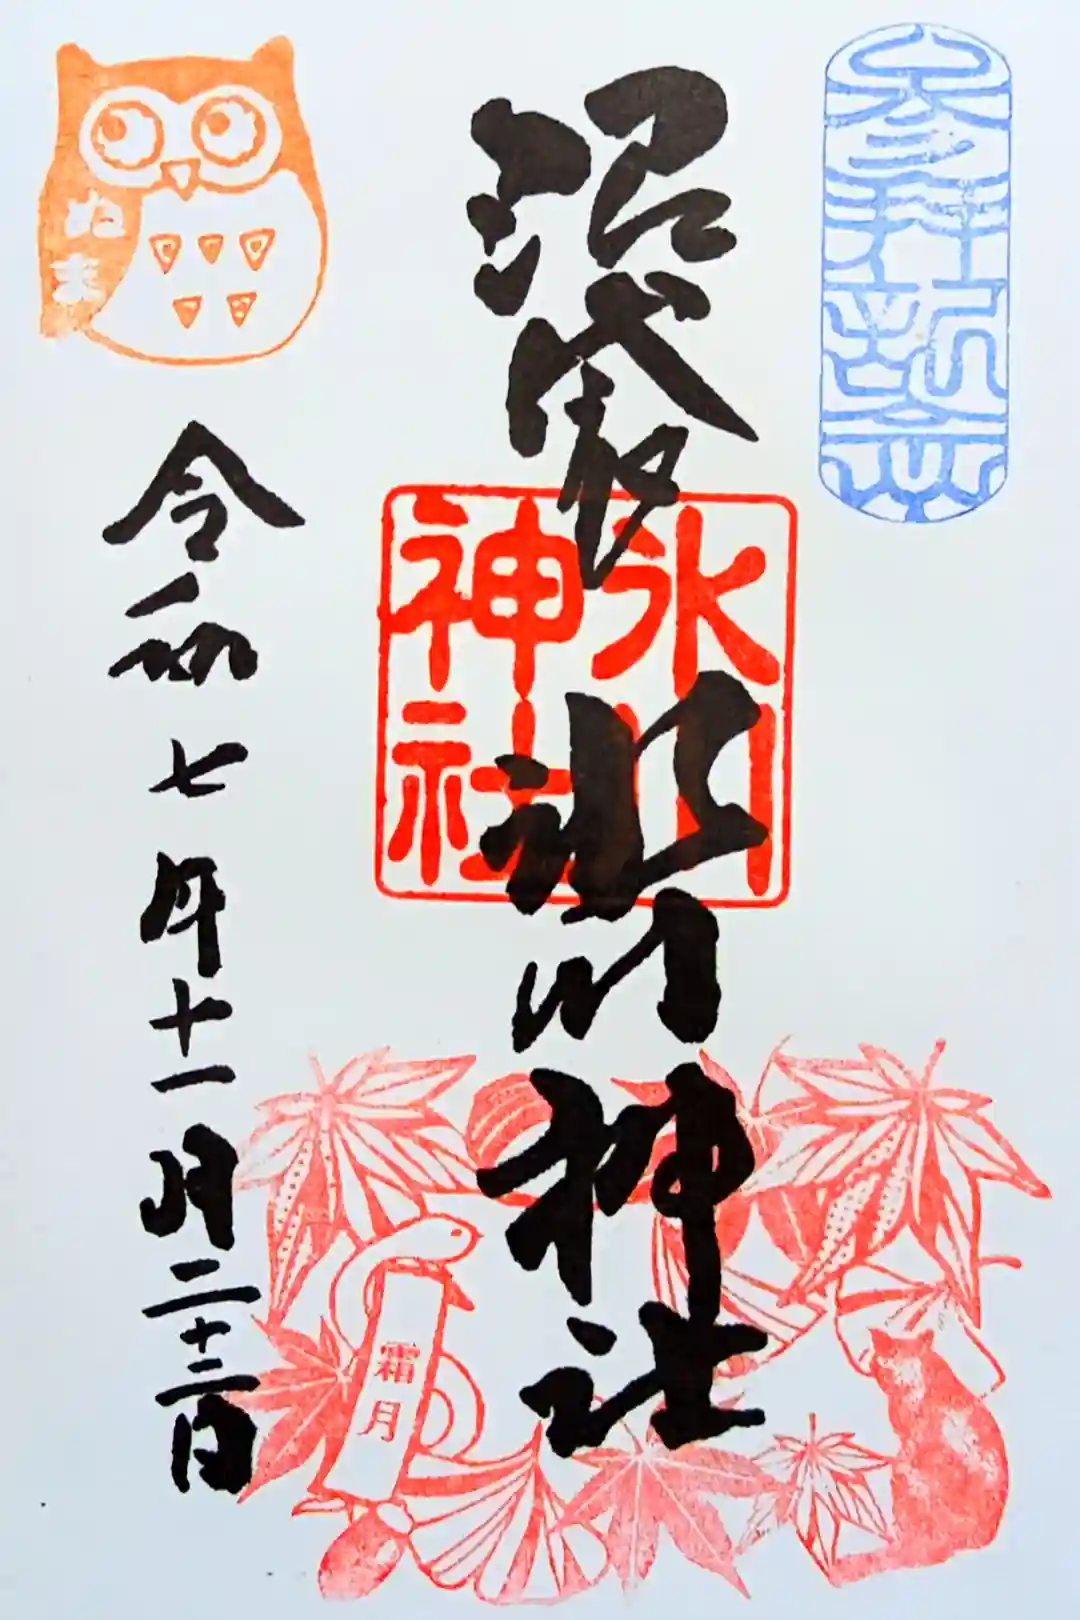 参拝祈念
沼袋氷川神社
氷川神社
令和七年十一月二十二日
ぬま
霜月